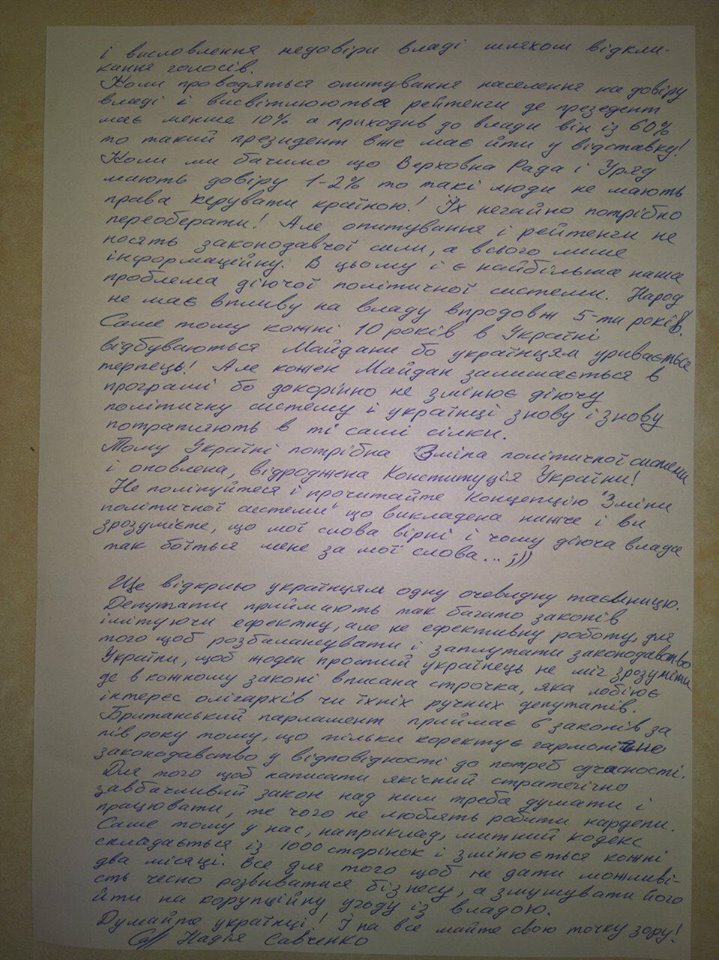 і висловлення недовіри владі шляхом відкли-
кання голосів.
Коли проводяться опитування населення на довіру
владі і висвітлюються рейтенги де президент
має менше 10% а приходив до влади він із 60%
то такий президент вже має йти у відставку!
Коли ми бачимо що Верховна Рада і Уряд
мають довіру 1-2% то такі люди не мають
права керувати країною! Їх негайно потрібно
переоберати! Але опитування і рейтенги не
носять законодавчої сили, а всього лише
інформаційну. В цьому і є найбільша наша
проблема діючої політичної системи. Народ
не має впливу на владу впродовж 5-ти років.
Саме тому кожні 10 років в Україні
відбуваються Майдани бо українцям уривається
терпець! Але кожен Майдан залишається в
програші бо докорінно не змінює діючу
політичну систему і українці знову і знову
потрапляють в ті самі сілки.
Тому Україні потрібна Зміна політичної системи
і оновлена, відроджена Конституція України!
Не полінуйтеся і прочитайте Концепцію "Зміни
політичної системи" що викладена нижче і ви
зрозумієте, що мої слова вірні і чому діюча влада
так боїться мене за мої слова... ;))
Ще відкрию українцям одну очевидну таємницю.
Депутати приймають так багато законів
імітуючи ефектну, але не ефективну роботу, для
того щоб розбалансувати і заплутати законодавство
України, щоб жоден простий українець не міг зрозуміти
де в кожному законі вписана строчка, яка лобіює
інтерес олігархів чи їхніх ручних депутатів.
Британський парламент приймає 6 законів за
пів року тому, що тільки коректує гармонічно
законодавство у відповідності до потреб сучасності.
Для того щоб написати якісний стратегічно
завбачливий закон над ним треба думати і
працювати, те чого не люблять робити нардепи.
Саме тому у нас, наприклад, митний кодекс
складається із 1000 сторінок і змінюється кожні
два місяці. Все для того щоб не дати можливі-
сть чесно розвиватися бізнесу, а змушувати його
йти на корупційну угоду із владою.
Думайте українці! І на все майте свою точку зору!
Надія Савченко